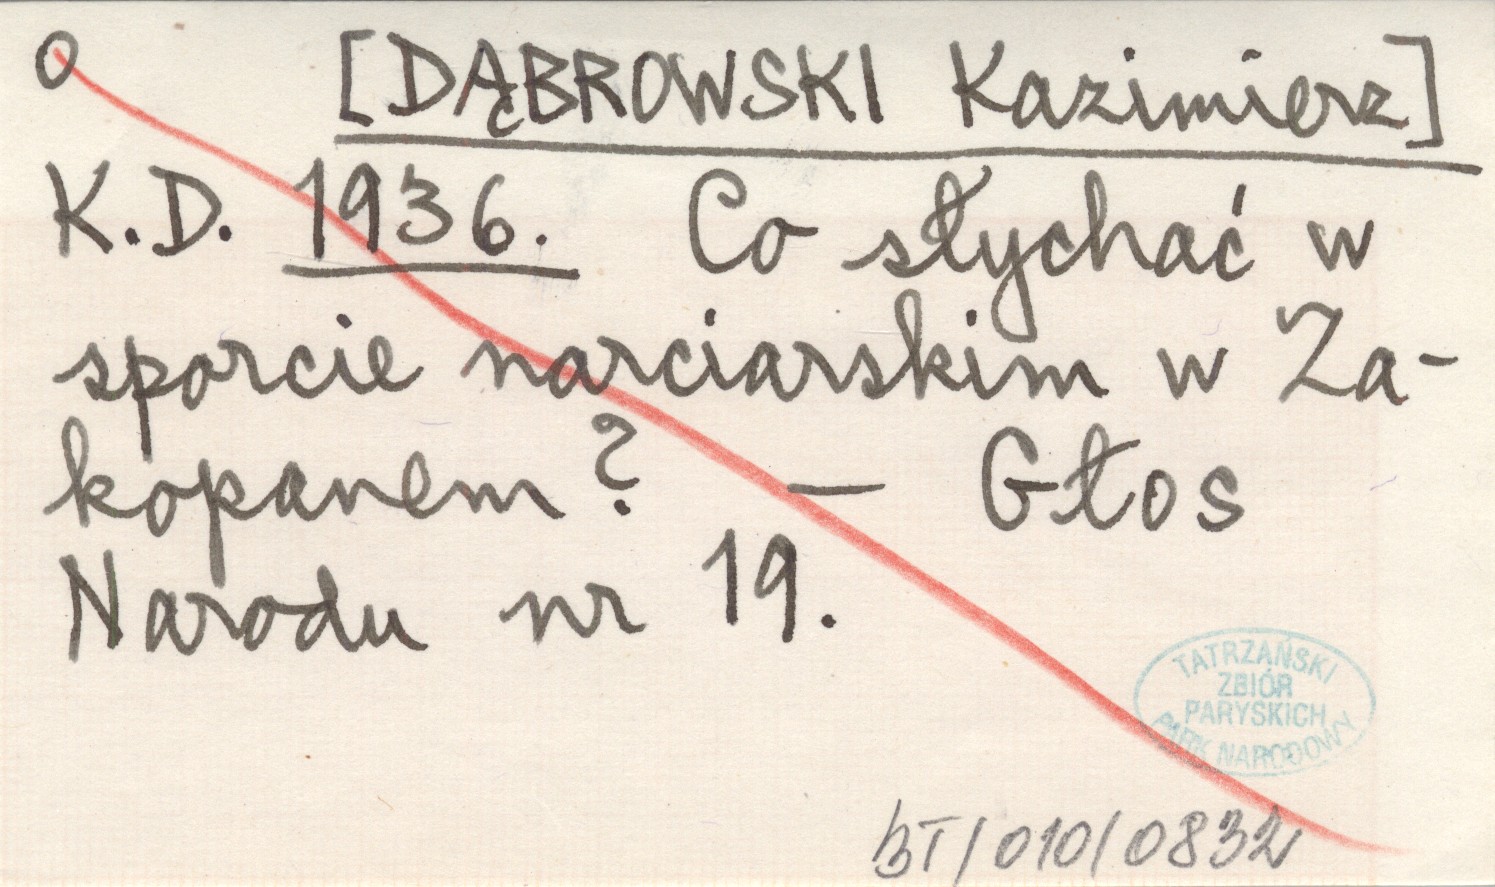 O [DĄBROWSKI Kazimierz]
K.D. 1936. Co słychać w
sporcie narciarskim w Za-
kopanem? — Głos
Narodu nr 19.
TATRZAŃSKI
ZBIÓR
PARYSKICH
PARK NARODOWY
BT/010/0832